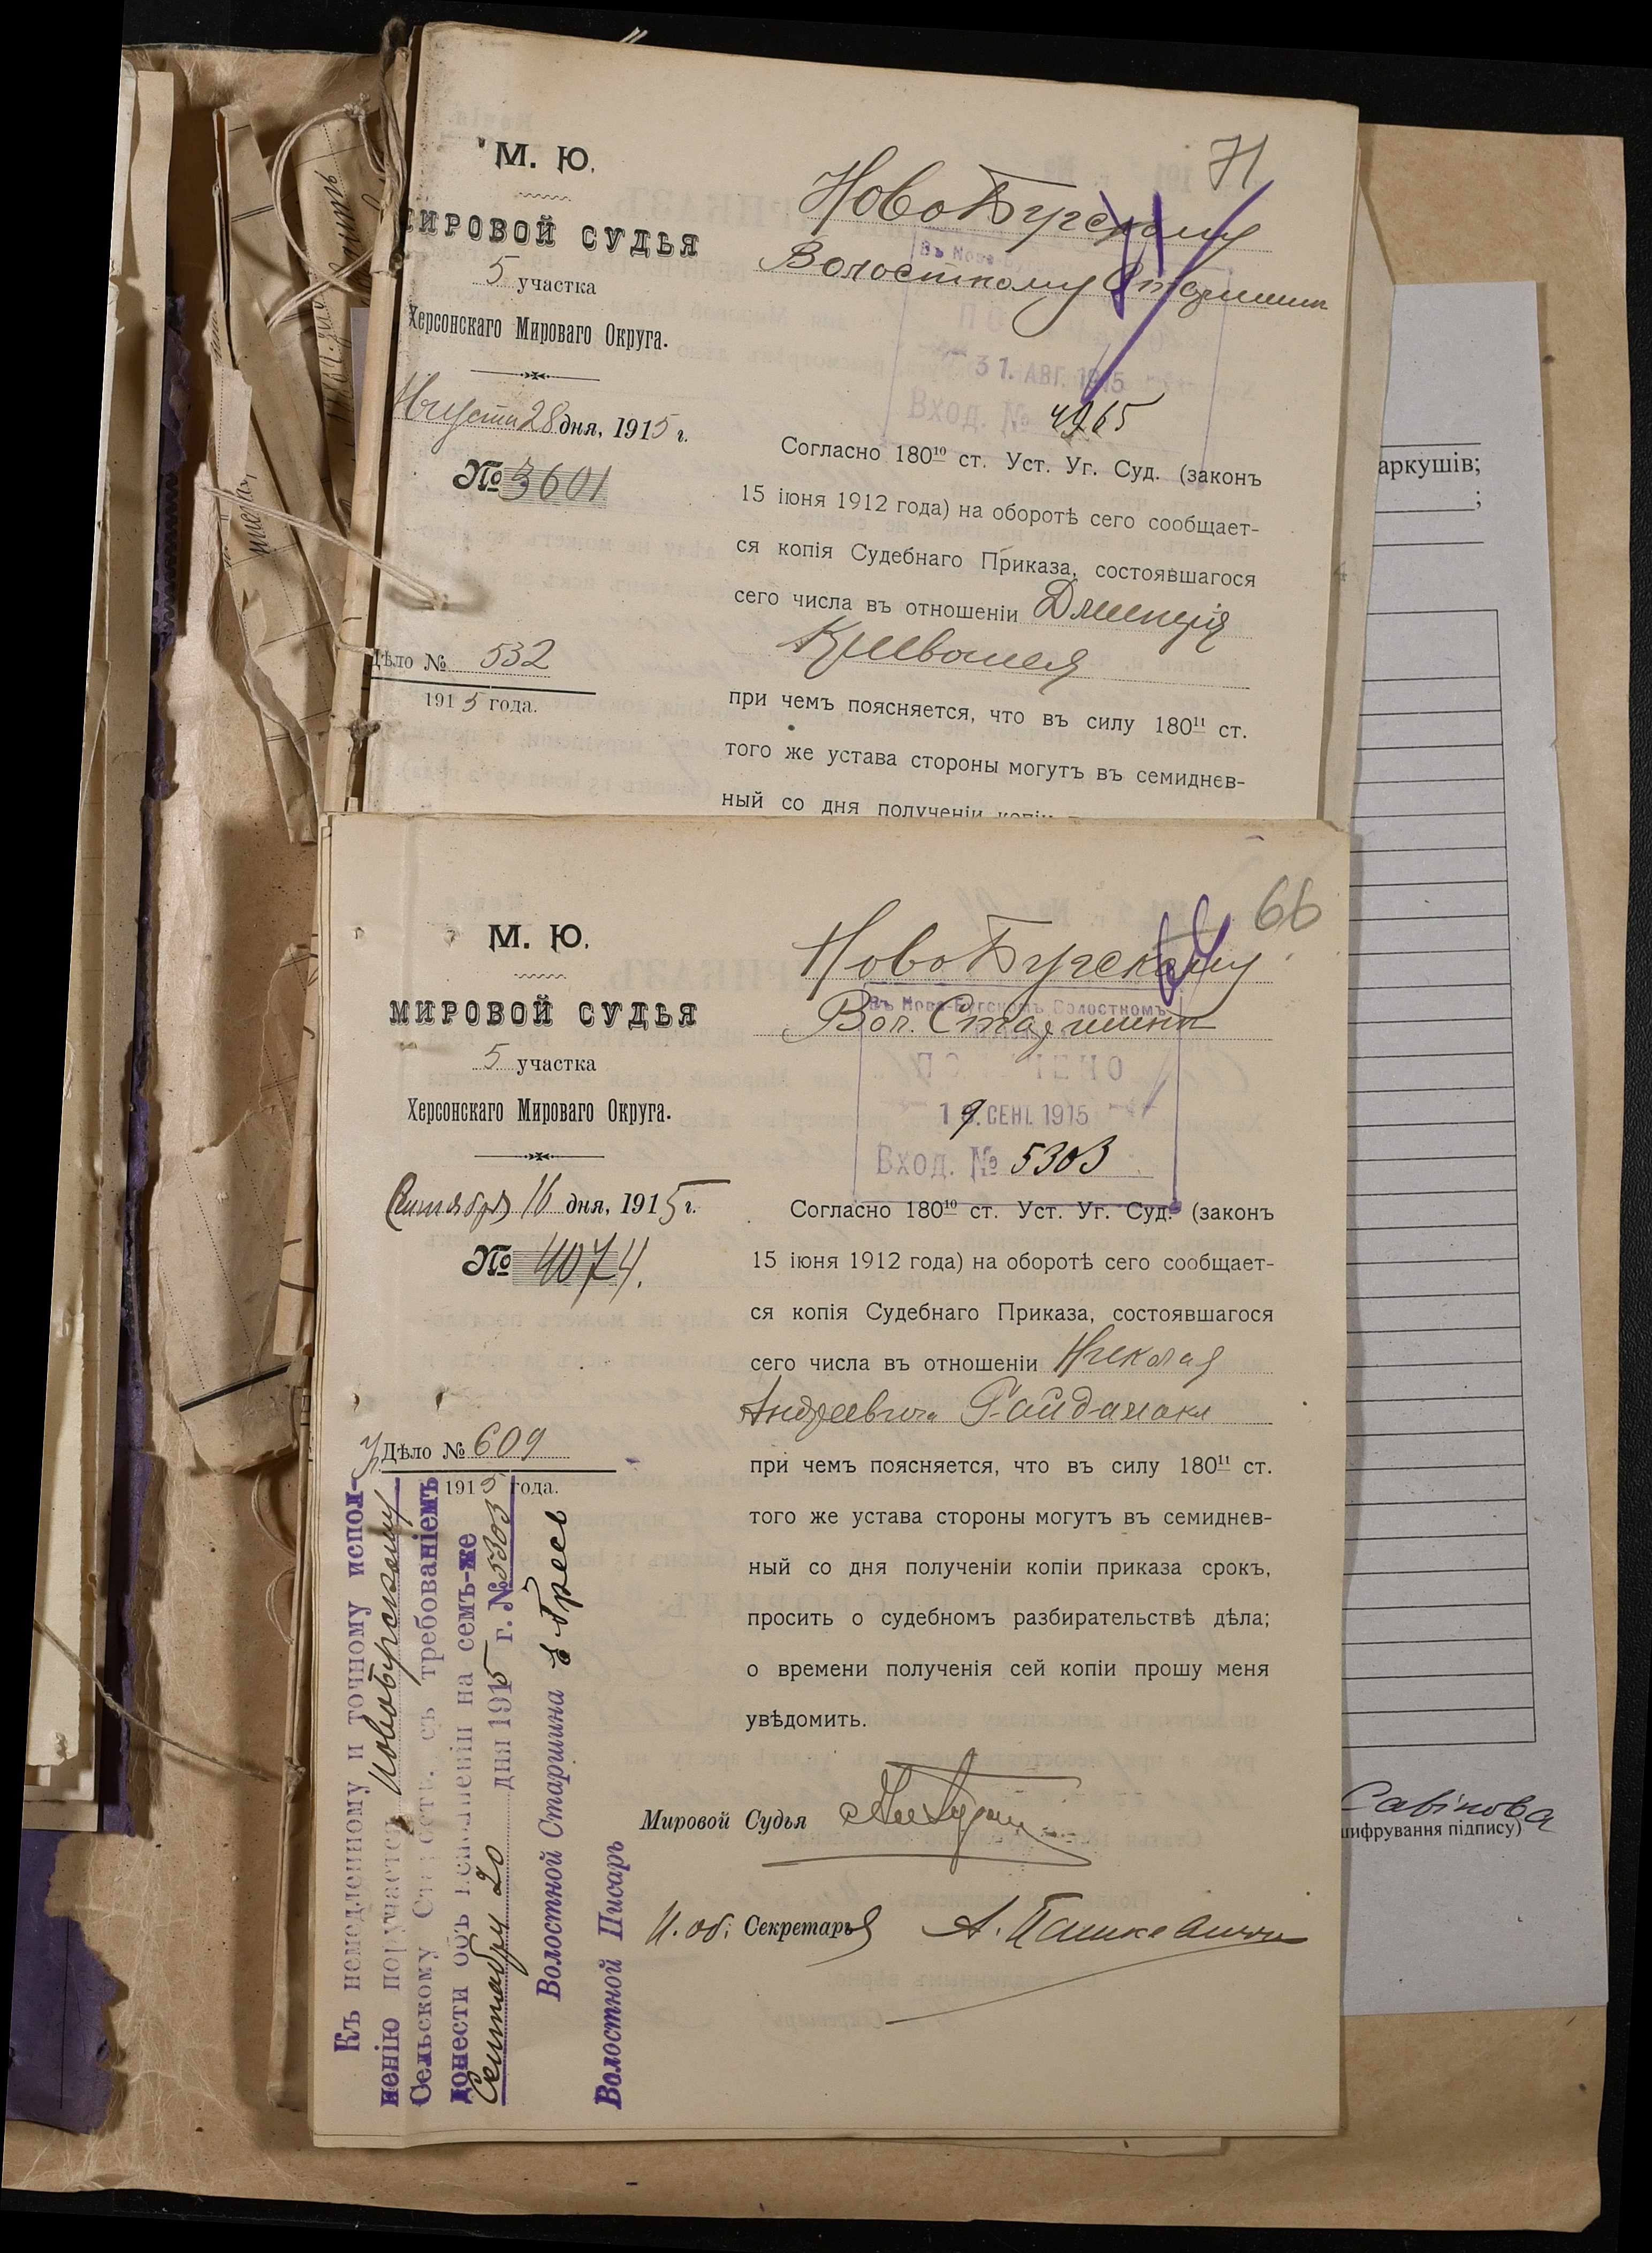 М. Ю.
МИРОВОЙ СУДЬЯ
5 участка
Херсонскаго Мироваго Округа.
Августа 28 дня, 1915 г.
№ 3601
Дѣло № 532
1915 года.
71
НовоБугскому
Волостному Старшинѣ
Въ Ново-
31. АВГ. 1915
Вход. № 4965
Согласно 180¹⁰ ст. Уст. Уг. Суд. (законъ
15 іюня 1912 года) на оборотѣ сего сообщает-
ся копія Судебнаго Приказа, состоявшагося
сего числа въ отношеніи Дмитрія
Кривошея
при чемъ поясняется, что въ силу 180¹¹ ст.
того же устава стороны могутъ въ семиднев-
ный со дня полученіи копіи
М. Ю.
МИРОВОЙ СУДЬЯ
5 участка
Херсонскаго Мироваго Округа.
Сентября 16 дня, 1915 г.
№ 4074.
Дѣло № 609
1915 года.
66
НовоБугскому
Вол. Старшинѣ
Въ Ново-Бугскомъ Волостномъ
ПОЛУЧЕНО
19. СЕНТ. 1915
Вход. № 5303
Согласно 180¹⁰ ст. Уст. Уг. Суд. (законъ
15 іюня 1912 года) на оборотѣ сего сообщает-
ся копія Судебнаго Приказа, состоявшагося
сего числа въ отношеніи Николая
Андреевича Гайдамаки
при чемъ поясняется, что въ силу 180¹¹ ст.
того же устава стороны могутъ въ семиднев-
ный со дня полученіи копіи приказа срокъ,
просить о судебномъ разбирательствѣ дѣла;
о времени полученія сей копіи прошу меня
увѣдомить.
Мировой Судья
И. об. Секретаря А. Пашкевичъ
Къ немедленному и точному испол-
ненію поручается Новобугскому
Сельскому Старостѣ, съ требованіемъ
донести объ исполненіи на семъ-же
Сентября 20 дня 1915 г. № 5303
Волостной Старшина
Волостной Писарь
аркушів;
;
Савінова
шифрування підпису)